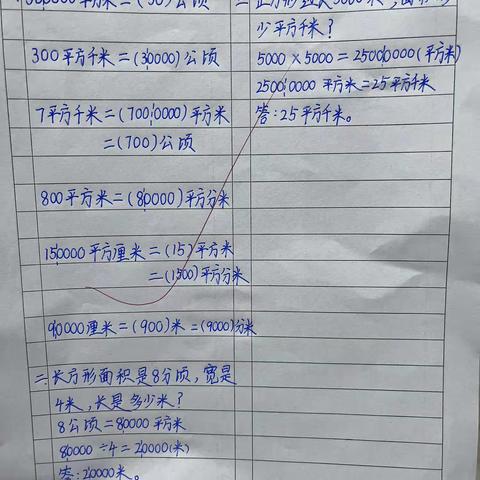 300平方千米=(30000)公顷
7平方千米=(7000000)平方米
=(700)公顷
800平方米=(80000)平方分米
150000平方厘米=(15)平方米
=(1500)平方分米
90000厘米=(900)米=(9000)分米
二.长方形面积是8分顷,宽是
4米,长是多少米?
8公顷=80000平方米
80000÷4=20000(米)
答:20000米。
少平方千米?
5000×5000=25000000(平方米)
25000000平方米=25平方千米
答:25平方千米。